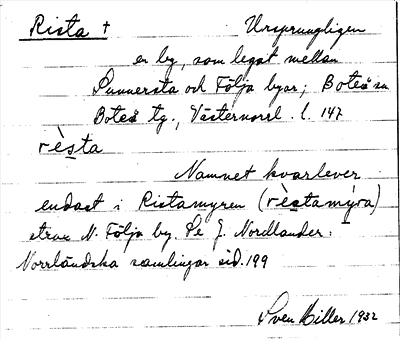 Rista † Ursprungligen
en by, som legat mellan
Sunnersta och Följa byar; Boteå sn
Boteå tg., Västernorrl. l. 147
rèsta
Namnet kvarlever
endast i Ristamyren (rèstamýra)
strax N. Följa by. Se J. Nordlander:
Norrländska samlingar sid. 199
Sven Hiller 1932